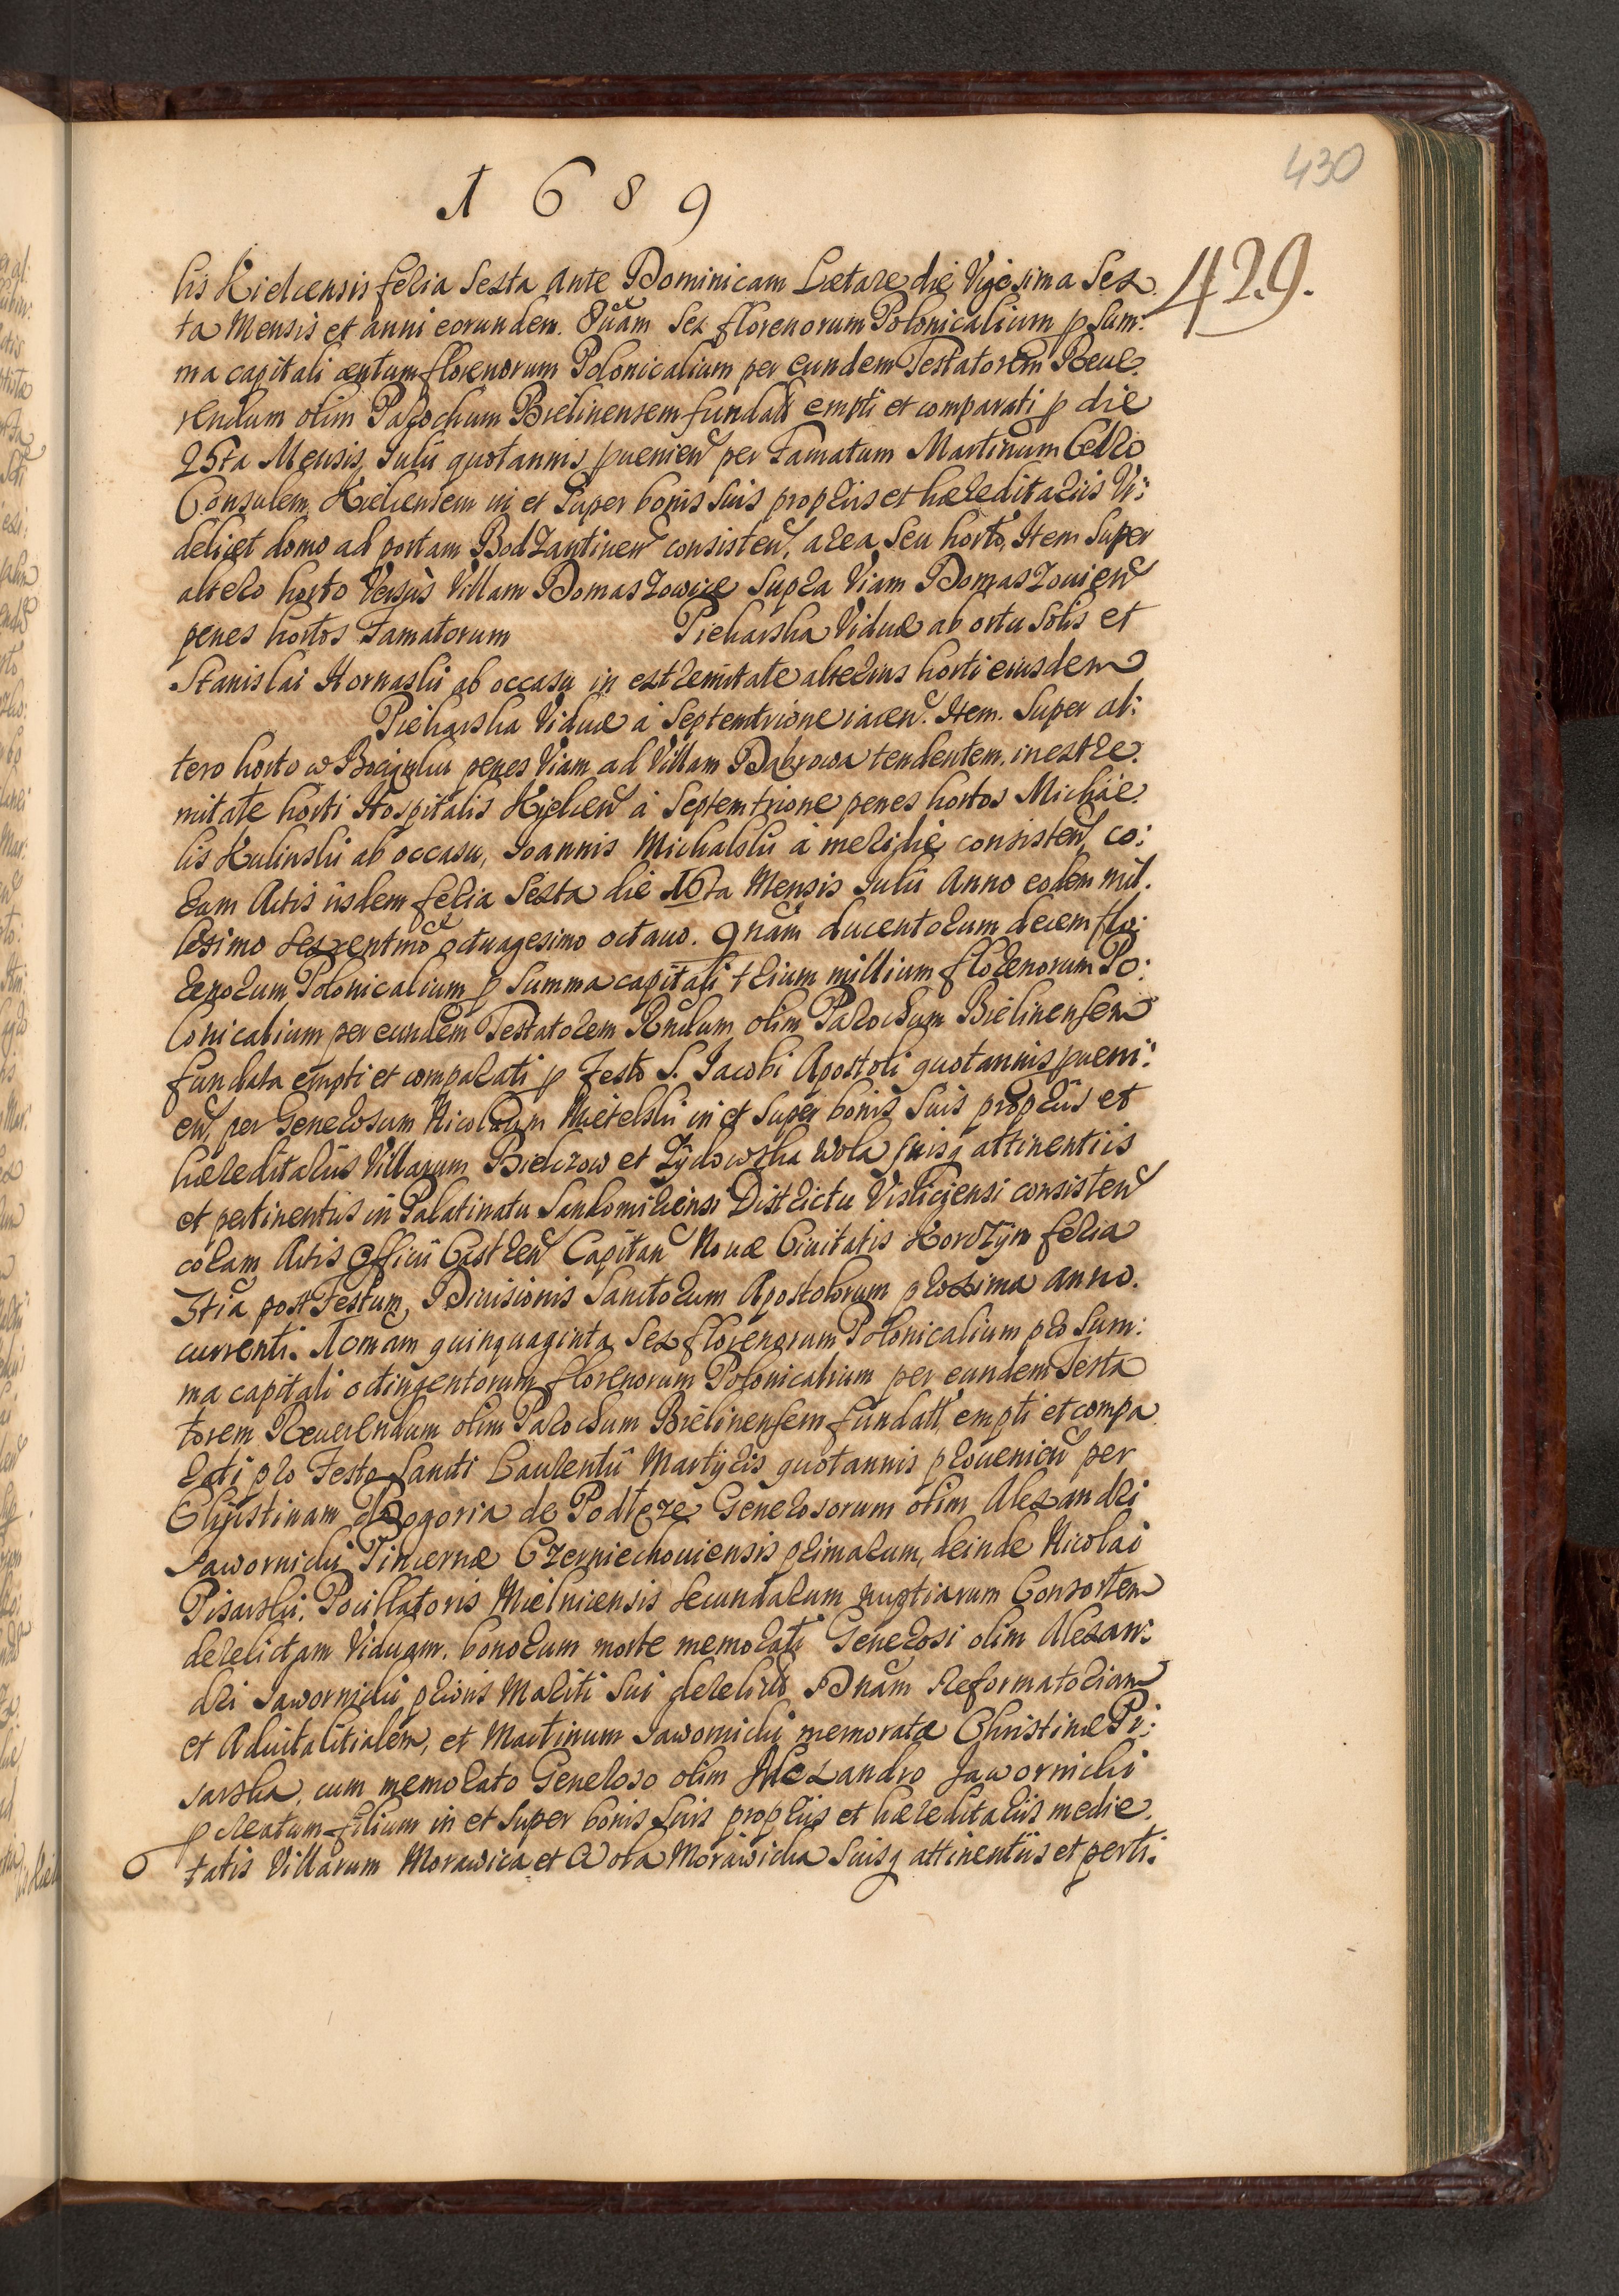 430
1689
429.
lis Kielcensis feria Sexta ante Dominicam Lætare die Vigesima Sex
ta Mensis et anni eorundem. 8uam Sex florenorum Polonicalium p Sum:
ma capitali centum florenorum Polonicalium per eundem Testatorem Reue.
rendum olim Parochum Bielinensem fundat empti et comparati p die
25ta Mensis Iulii quotannis puenien per Famatum Martinum
Consulem Kielcensem in et Super bonis Suis propriis et hæreditariis Vi:
delicet domo ad portam Bodzantinen consisten, area Seu horto, Item Super
altero horto Versus Villam Domaszowice Supra Viam Domaszouien
penes hortos Famatorum Piekarska Viduæ ab ortu Solis et
Stanislai Hornaskii ab occasu in extremitate alterius horti eiusdem
Piekarska Viduæ a Septemtrione iacen. Item. Super al:
tero horto w penes Viam ad Villam Dabrowa tendentem. in extre.
mitate horti Hospitalis Kielcen a Septemtrione penes hortos Michae.
lis Kulinskii ab occasu, Ioannis Michalskii a meridie consisten, co:
ram Actis iisdem feria Sexta die 16ta Mensis Iulii Anno eodem mil.
lesimo Sexcentmo octuagesimo octauo. 9nam ducentorum decem flo:
renorum Polonicalium p Summa capitali trium millium florenorum Po:
lonicalium per eundem Testatorem Rndum olim Parochum Bielinensem
fundata empti et comparati p Festo S. Iacobi Apostoli quotannis pueni:
en, per Generosum Nicolaum Mietelski in et Super bonis Suis propriis et
hæreditariis Villarum Bielczow et Zydowska Wola Suisq attinentiis
et pertinentiis in Palatinatu Sandomiriensi Districtu Visliciensi consisten
coram Actis Officii Castren Capitan Nouæ Ciuitatis Korczyn feria
3tia post Festum Diuisionis Sanctorum Apostolorum proxima anno.
currenti. 10mam quinquaginta Sex florenorum Polonicalium pro Sum:
ma capitali octingentorum florenorum Polonicalium per eundem Testa
torem Reuerendum olim Parochum Bielinensem fundat, empti et compa
rati pro Festo Sancti Laurentii Martyris quotannis prouenien per
Christinam Pogoria de Podłęze Generosorum olim Alexandri
Iawornicki Pincernæ Czerniechouiensis primarum, deinde Nicolai
Pisarski, Pocillatoris Mielnicensis Secundarum nuptiarum Consortem
derelictam Viduam. bonorum morte memorati Generosi olim Alexan:
dri Iawornicki prioris Mariti Sui derelict Dnam Reformatoriam
et Aduitalitialem, et Martinum Iawornicki memoratæ Christinæ Pi:
sarska, cum memorato Generoso olim Alexandro Jawornicki
p creatum filium in et Super bonis Suis propriis et hæreditariis medie.
tatis Villarum Morawica et Wola Morawicka Suisq attinentiis et perti: